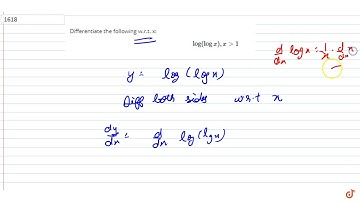 1618
Differentiate the following w.r.t. x:
log(log x), x > 1
d/dx log x = 1/x · d/dx x
y = log (log x)
Diff both sides w.r.t x
dy/dx = d/dx log (log x)
doubtnut